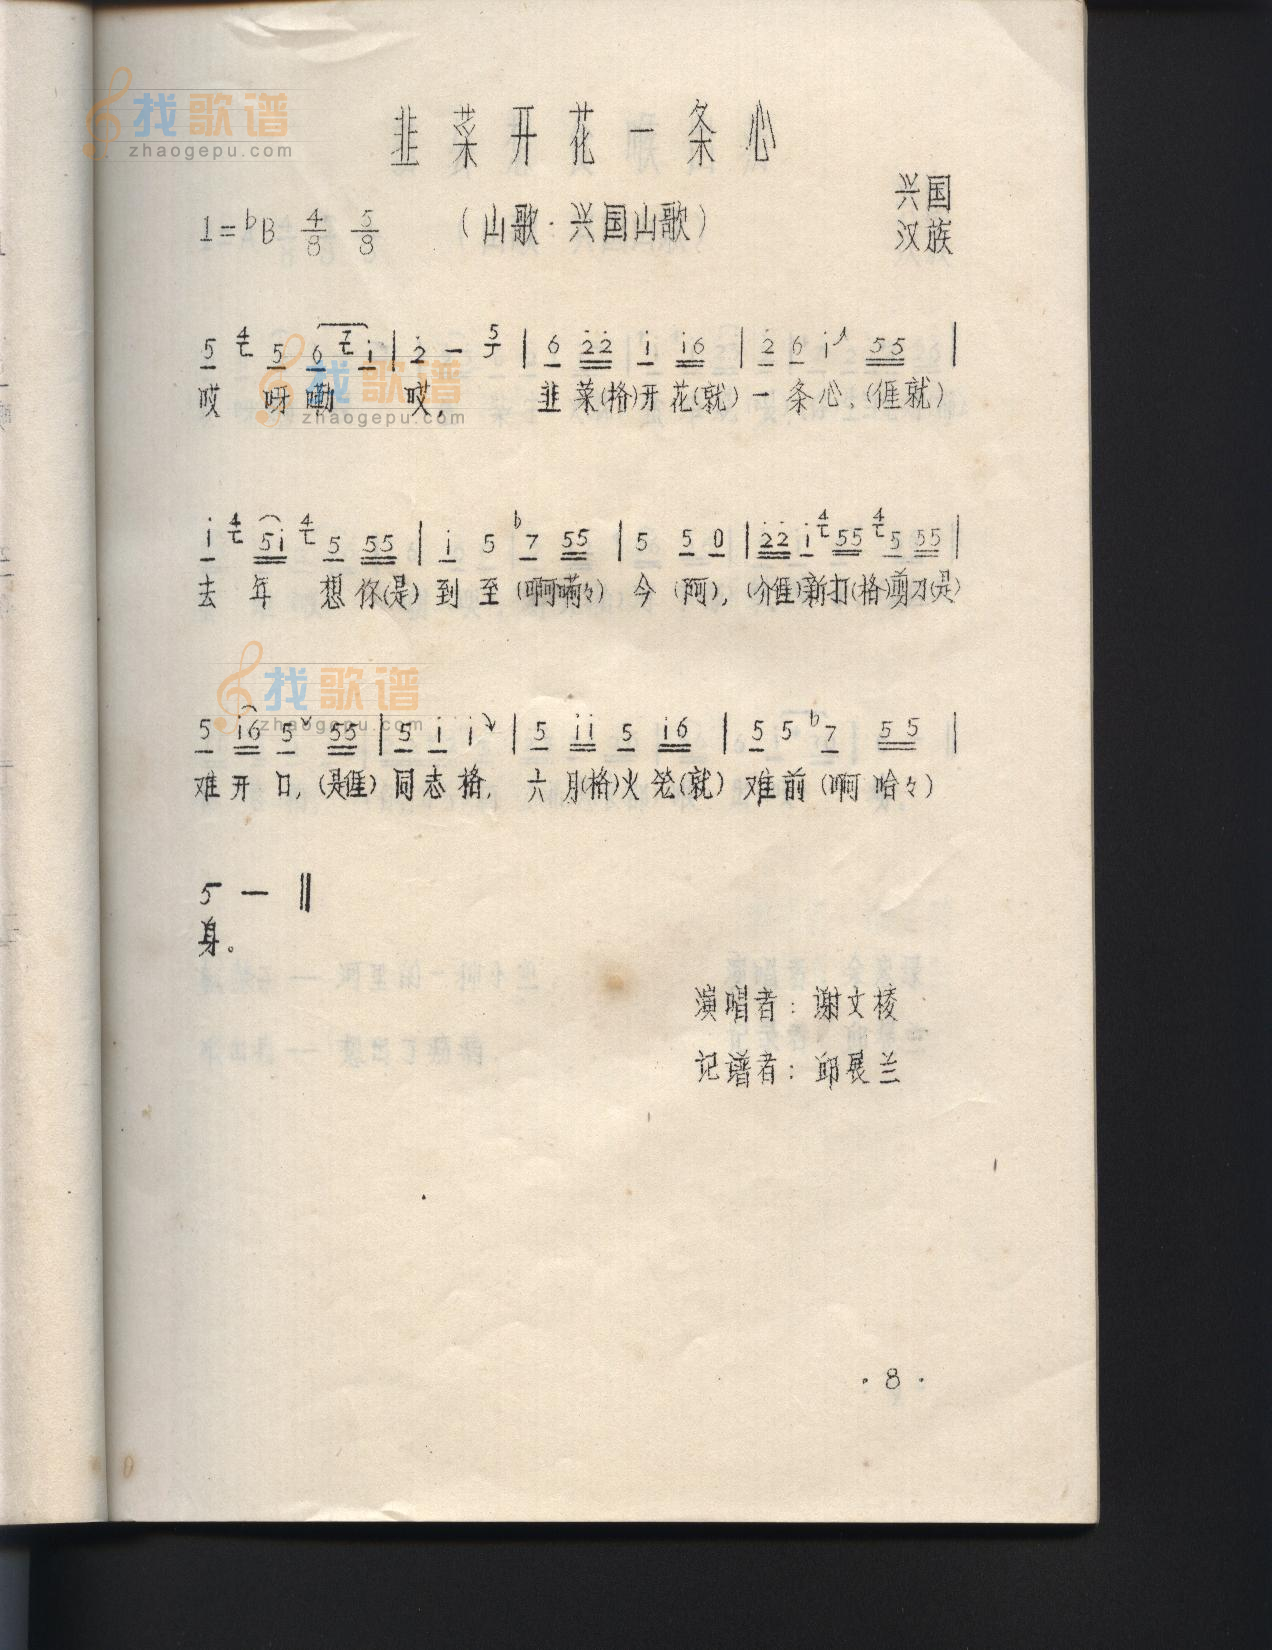 找歌谱
zhaogepu.com
韭菜开花一条心
兴国
汉族
1=♭B 4/8 5/8 (山歌·兴国山歌)
5 4 5 6 7 i | 2̇ — 5 | 6 2̇2̇ i i6 | 2̇ 6 i 55 |
哎 呀嘞 哎, 韭菜(格)开花(就)一条心,(𠊎就)
找歌谱
zhaogepu.com
i 4 5i 4 5 55 | i 5 ♭7 55 | 5 5 0 | 2̇2̇ i 4 55 4 5 55 |
去年 想你(是)到至(啊嗬々)今(阿),(介𠊎)新打(格)剪刀(是)
找歌谱
zhaogepu.com
5 i6 5 55 | 5 i i | 5 ii 5 i6 | 5 5 ♭7 55 |
难开口,(是𠊎)同志格, 六月(格)火笼(就)难前(啊哈々)
5 — ‖
身。
演唱者:谢文棱
记谱者:邱展兰
·8·